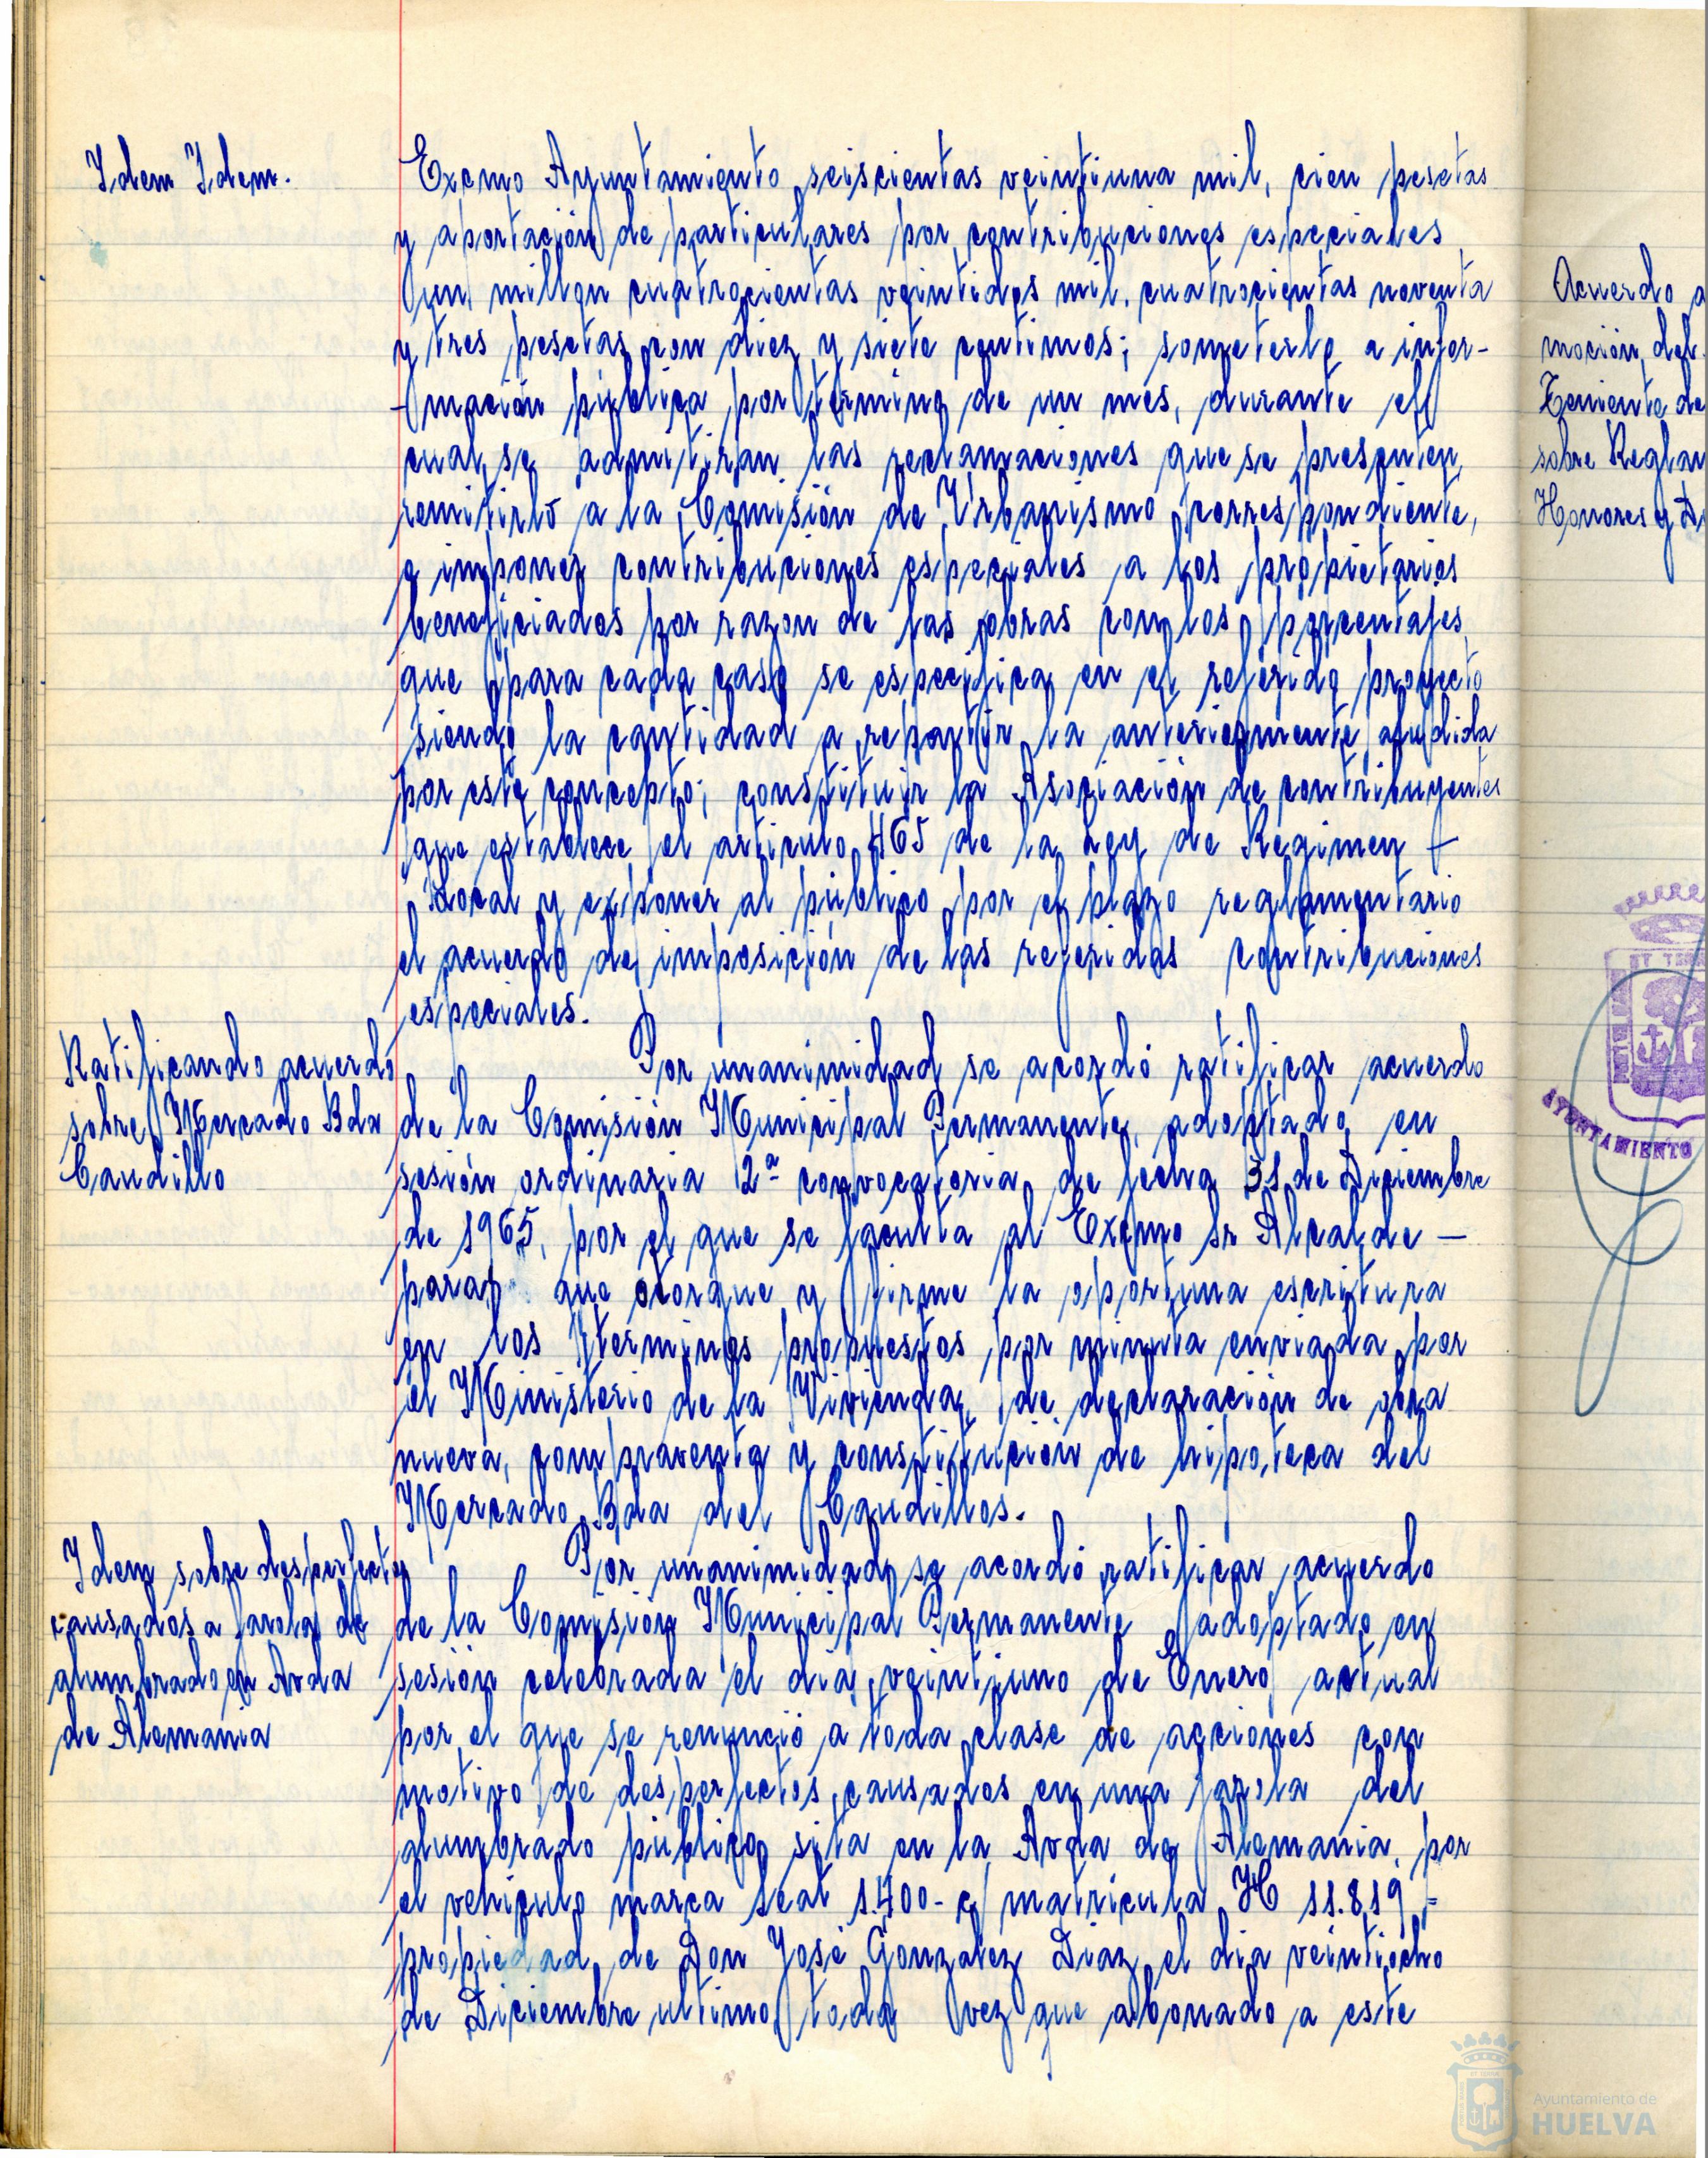 Idem Idem.
Excmo Ayuntamiento seiscientas veintiuna mil, cien pesetas
y aportación de particulares por contribuciones especiales
un millon cuatrocientas veintidos mil. cuatrocientas noventa
y tres pesetas con diez y siete centimos; someterlo a infor-
-mación pública por termino de un mes, durante el
cual se admitiran las reclamaciones que se presenten,
remitirlo a la Comisión de Urbanismo correspondiente,
e imponer contribuciones especiales a los propietarios
beneficiados por razon de las obras con los porcentajes
que para cada caso se especifica en el referido proyecto
siendo la cantidad a repartir la anteriormente aludida
por este concepto; constituir la Asociación de contribuyentes
que establece el articulo 465 de la Ley de Regimen -
Local y exponer al público por el plazo reglamentario
el acuerdo de imposición de las referidas contribuciones
especiales.
Ratificando acuerdo
sobre Mercado Bda
Caudillo
Por unanimidad se acordó ratificar acuerdo
de la Comisión Municipal Permanente, adoptado en
sesión ordinaria 2ª convocatoria de fecha 31 de Diciembre
de 1965, por el que se faculta al Excmo Sr Alcalde —
para que otorgue y firme la oportuna escritura
en los terminos propuestos por minuta enviada por
el Ministerio de la Vivienda, de declaración de obra
nueva, compraventa y constitución de hipoteca del
Mercado Bda del Caudillos.
Idem sobre desperfectos
causados a farola de
alumbrado en Avda
de Alemania
Por unanimidad se acordó ratificar acuerdo
de la Comisión Municipal Permanente adoptado en
sesión celebrada el dia veintiuno de Enero actual
por el que se renunció a toda clase de acciones con
motivo de desperfectos causados en una farola del
alumbrado público sita en la Avda de Alemania, por
el vehiculo marca Seat 1.400-c matricula H 11.819 =
propiedad de Don José Gonzalez Diaz el dia veintiocho
de Diciembre ultimo, toda vez que abonado a este
Acuerdo a
moción del
Teniente de
sobre Reglam
Honores y Di
AYUNTAMIENTO
Ayuntamiento de
HUELVA